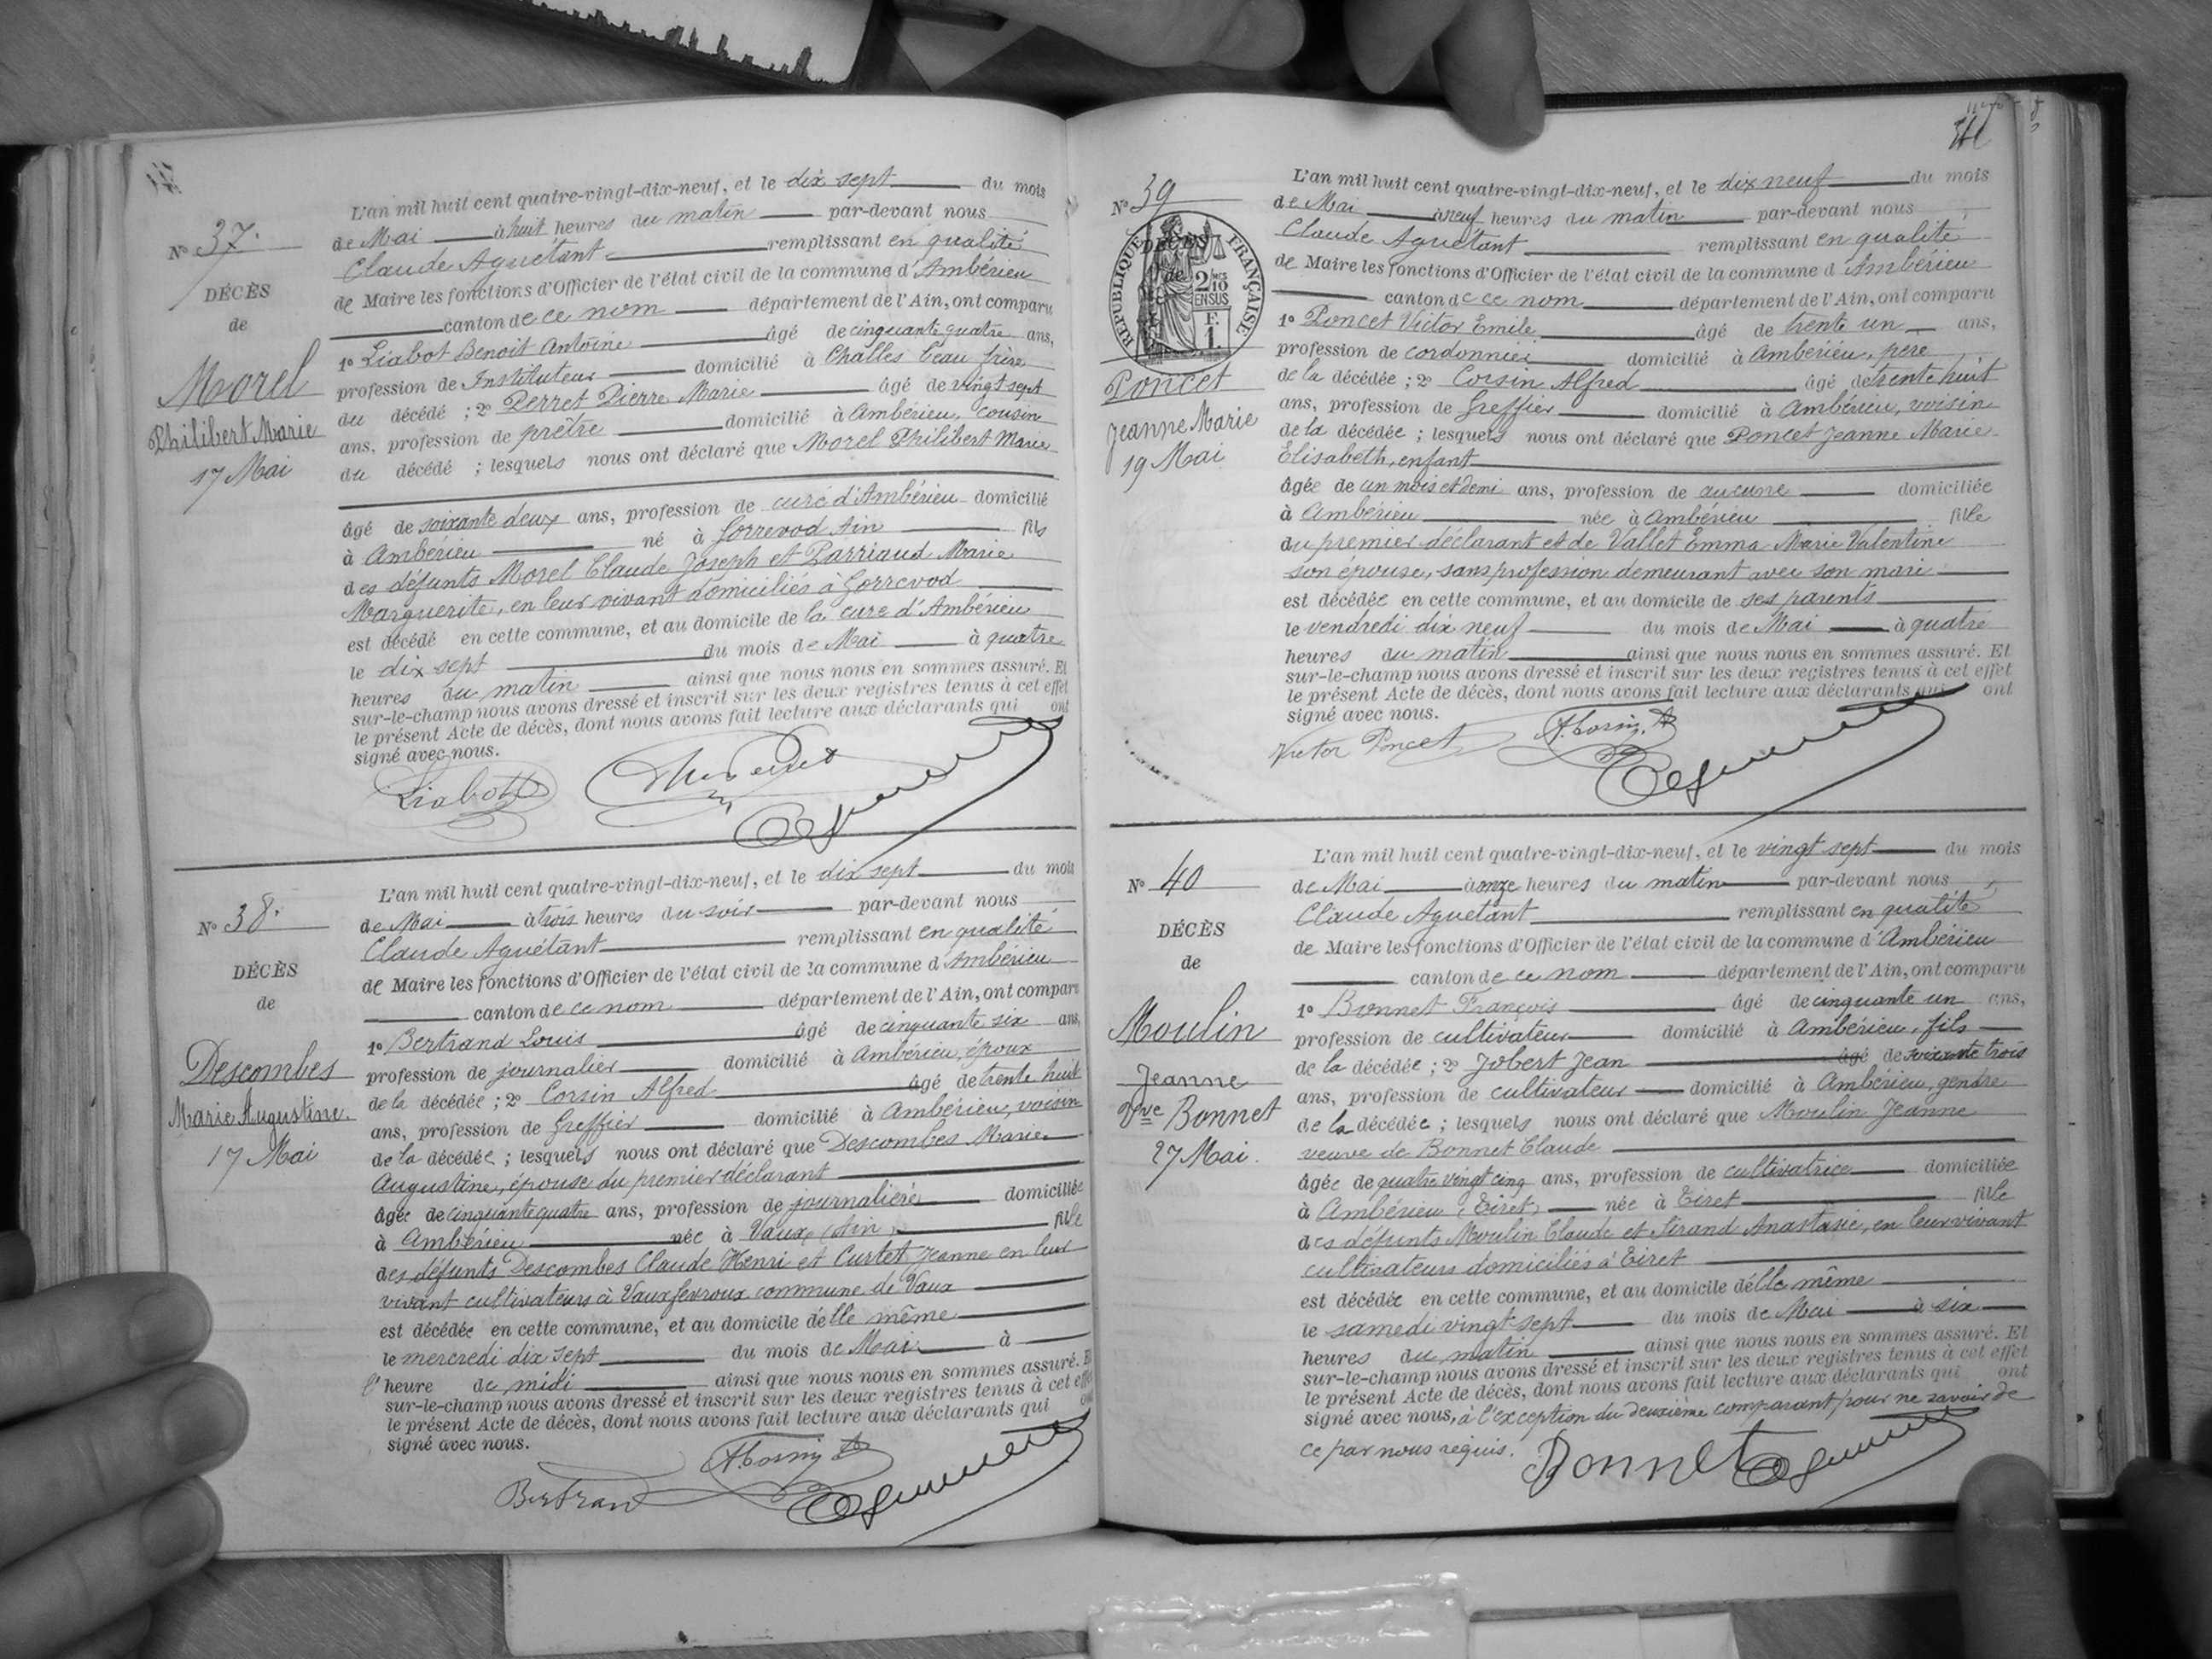 N° 37.
DÉCÈS
de
Morel
Philibert Marie
17 Mai
L'an mil huit cent quatre-vingt-dix-neuf, et le dix sept du mois
de Mai à huit heures du matin par-devant nous
Claude Aguétant remplissant en qualité
de Maire les fonctions d'Officier de l'état civil de la commune d'Ambérieu
canton de ce nom département de l'Ain, ont comparu
1° Liabot Benoit Antoine âgé de cinquante quatre ans,
profession de Instituteur domicilié à Challes beau frère
du décédé ; 2° Perret Pierre Marie âgé de vingt sept
ans, profession de prêtre domicilié à Ambérieu, cousin
du décédé ; lesquels nous ont déclaré que Morel Philibert Marie
âgé de soixante deux ans, profession de curé d'Ambérieu domicilié
à Ambérieu né à Gorrevod Ain fils
des défunts Morel Claude Joseph et Parriaud Marie
Marguerite, en leur vivant domiciliés à Gorrevod
est décédé en cette commune, et au domicile de la cure d'Ambérieu
le dix sept du mois de Mai à quatre
heures du matin ainsi que nous nous en sommes assuré. Et
sur-le-champ nous avons dressé et inscrit sur les deux registres tenus à cet effet
le présent Acte de décès, dont nous avons fait lecture aux déclarants qui ont
signé avec nous.
Liabot
N° 38.
DÉCÈS
de
Descombes
Marie Augustine.
17 Mai
L'an mil huit cent quatre-vingt-dix-neuf, et le dix sept du mois
de Mai à trois heures du soir par-devant nous
Claude Aguétant remplissant en qualité
de Maire les fonctions d'Officier de l'état civil de la commune d'Ambérieu
canton de ce nom département de l'Ain, ont comparu
1° Bertrand Louis âgé de cinquante six ans,
profession de journalier domicilié à Ambérieu, époux
de la décédée ; 2° Corsin Alfred âgé de trente huit
ans, profession de Greffier domicilié à Ambérieu, voisin
de la décédée ; lesquels nous ont déclaré que Descombes Marie
Augustine, épouse du premier déclarant
âgée de cinquante quatre ans, profession de journalière domiciliée
à Ambérieu née à Vaux, Ain, fille
des défunts Descombes Claude Henri et Curtet Jeanne en leur
vivant cultivateurs à Vauxfevroux commune de Vaux
est décédée en cette commune, et au domicile d'elle même
le mercredi dix sept du mois de Mai à
l'heure de midi ainsi que nous nous en sommes assuré. Et
sur-le-champ nous avons dressé et inscrit sur les deux registres tenus à cet effet
le présent Acte de décès, dont nous avons fait lecture aux déclarants qui ont
signé avec nous.
Bertrand
N° 39
RÉPUBLIQUE FRANÇAISE
DÉCÈS
de
2 MES 10
EN SUS
F.
1.
Poncet
Jeanne Marie
19 Mai
L'an mil huit cent quatre-vingt-dix-neuf, et le dix neuf du mois
de Mai à neuf heures du matin par-devant nous
Claude Aguétant remplissant en qualité
de Maire les fonctions d'Officier de l'état civil de la commune d'Ambérieu
canton de ce nom département de l'Ain, ont comparu
1° Poncet Victor Emile âgé de trente un ans,
profession de cordonnier domicilié à Ambérieu, père
de la décédée ; 2° Corsin Alfred âgé de trente huit
ans, profession de Greffier domicilié à Ambérieu, voisin
de la décédée ; lesquels nous ont déclaré que Poncet Jeanne Marie
Elisabeth, enfant
âgée de un mois et demi ans, profession de aucune domiciliée
à Ambérieu née à Ambérieu fille
du premier déclarant et de Vallet Emma Marie Valentine
son épouse, sans profession demeurant avec son mari
est décédée en cette commune, et au domicile de ses parents
le vendredi dix neuf du mois de Mai à quatre
heures du matin ainsi que nous nous en sommes assuré. Et
sur-le-champ nous avons dressé et inscrit sur les deux registres tenus à cet effet
le présent Acte de décès, dont nous avons fait lecture aux déclarants qui ont
signé avec nous.
Victor Poncet
N° 40
DÉCÈS
de
Moulin
Jeanne
Vve Bonnet
27 Mai.
L'an mil huit cent quatre-vingt-dix-neuf, et le vingt sept du mois
de Mai à onze heures du matin par-devant nous
Claude Aguétant remplissant en qualité
de Maire les fonctions d'Officier de l'état civil de la commune d'Ambérieu
canton de ce nom département de l'Ain, ont comparu
1° Bonnet François âgé de cinquante un ans,
profession de cultivateur domicilié à Ambérieu, fils
de la décédée ; 2° Jobert Jean âgé de soixante trois
ans, profession de cultivateur domicilié à Ambérieu, gendre
de la décédée ; lesquels nous ont déclaré que Moulin Jeanne
veuve de Bonnet Claude
âgée de quatre vingt cinq ans, profession de cultivatrice domiciliée
à Ambérieu (Tiret) née à Tiret fille
des défunts Moulin Claude et Sirand Anastasie, en leur vivant
cultivateurs domiciliés à Tiret
est décédée en cette commune, et au domicile d'elle même
le samedi vingt sept du mois de Mai à six
heures du matin ainsi que nous nous en sommes assuré. Et
sur-le-champ nous avons dressé et inscrit sur les deux registres tenus à cet effet
le présent Acte de décès, dont nous avons fait lecture aux déclarants qui ont
signé avec nous, à l'exception du deuxième comparant pour ne savoir de
ce par nous requis.
Bonnet